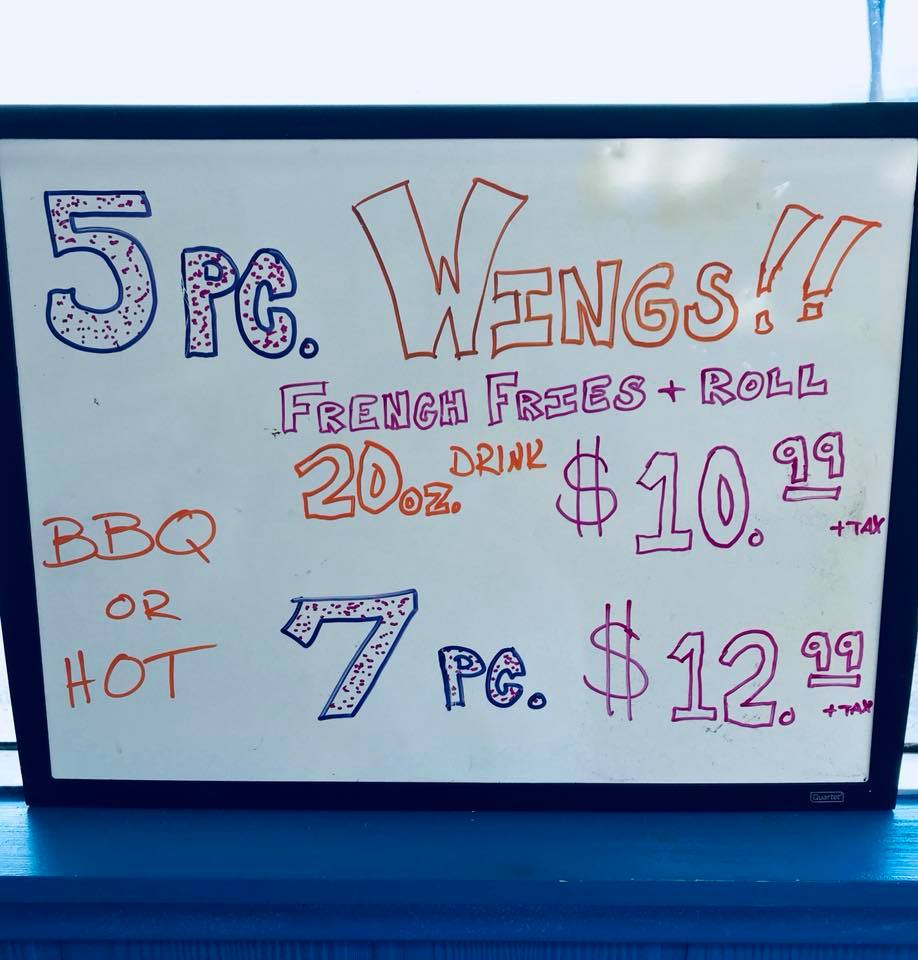 5 PC. WINGS!!
FRENCH FRIES + ROLL
20 oz. DRINK $10.99 + TAX
BBQ
OR
HOT
7 PC. $12.99 + TAX
Quartet